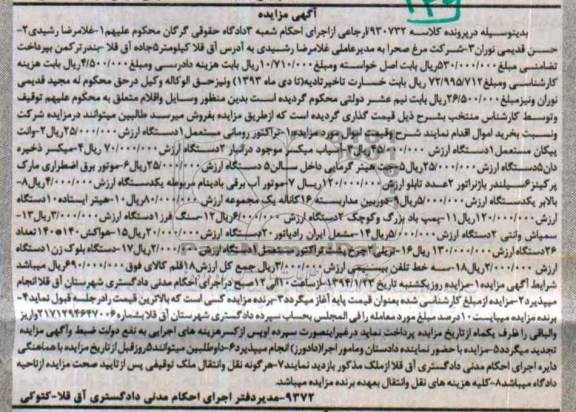 آگهی مزایده
بدینوسیله درپرونده کلاسه ۹۳۰۷۳۲ ارجاعی ازاجرای احکام شعبه ۳دادگاه حقوقی گرگان محکوم علیهم۱-غلامرضا رشیدی۲-
حسن قدیمی نوران۳-شرکت مرغ صحرا به مدیرعاملی غلامرضا رشیدی به آدرس آق قلا کیلومتر۵جاده آق قلا -بندرترکمن بپرداخت
تضامنی مبلغ ۵۳۰/۰۰۰/۰۰۰ریال بابت اصل خواسته ومبلغ ۱۰/۷۱۰/۰۰۰ریال بابت هزینه دادرسی ومبلغ۴/۵۰۰/۰۰۰ریال بابت هزینه
کارشناسی ومبلغ ۷۲/۹۹۵/۷۱۲ریال بابت خسارت تاخیرتادیه(تا دی ماه ۱۳۹۳) ونیزحق الوکاله وکیل درحق محکوم له مجید قدیمی
نوران ونیزمبلغ ۲۶/۵۰۰/۰۰۰ریال بابت نیم عشر دولتی محکوم گردیده است بدین منظور وسایل واقلام متعلق به محکوم علیهم توقیف
وتوسط کارشناس منتخب بشرح ذیل قیمت گذاری گردیده است که ازطریق مزایده بفروش میرسد طالبین میتوانند درمزایده شرکت
ونسبت بخرید اموال اقدام نمایند شرح وقیمت اموال مورد مزایده۱-تراکتور رومانی مستعمل۱دستگاه ارزش ۲۵/۰۰۰/۰۰۰ریال۲-وانت
پیکان مستعمل۱دستگاه ارزش ۴۵/۰۰۰/۰۰۰ریال۳-آسیاب میکسر موجود درانبار ۲دستگاه ارزش ۷۰/۰۰۰/۰۰۰ریال ۴-میکسر ذخیره
دان۵دستگاه ارزش ۲۵/۰۰۰/۰۰۰ریال۵-جت هیتر گرمایی داخل سالن۵ دستگاه ارزش ۲۵/۰۰۰/۰۰۰ریال۶-موتور برق اضطراری مارک
پرکینز۶سیلندر باژنراتور ۲عدد تابلو ارزش ۱۲۰/۰۰۰/۰۰۰ریال ۷-موتور آب برقی بادینام مربوطه یکدستگاه ارزش ۴/۰۰۰/۰۰۰ریال۸-
بالابر یکدستگاه ارزش ۵/۰۰۰/۰۰۰ریال۹-دوربین مداربسته ۱۶کاناله یک مجموعه ارزش ۸۰/۰۰۰/۰۰۰ریال۱۰-هیتر ایستاده۱۰دستگاه
ارزش ۱۲۰/۰۰۰/۰۰۰ریال۱۱-پمپ باد بزرگ وکوچک ۲دستگاه ارزش ۶/۰۰۰/۰۰۰ریال۱۲-سنگ فرز۱دستگاه ارزش ۳/۰۰۰/۰۰۰ریال۱۳-
سمپاش وانتی ۲دستگاه ارزش ۵/۰۰۰/۰۰۰ریال۱۴-مشعل ایران رادیاتور۲۰دستگاه ارزش ۲۰/۰۰۰/۰۰۰ریال۱۵-هواکش ۱۴۰*۱۴۰تعداد
۲۶دستگاه ارزش ۱۳۰/۰۰۰/۰۰۰ریال۱۶-تریلی۲چرخ پشت تراکتوری مستعمل۱دستگاه ارزش ۲/۰۰۰/۰۰۰ریال۱۷-دستگاه بلوک زن۱دستگاه
ارزش ۲/۰۰۰/۰۰۰ریال۱۸-سه خط تلفن بیسیمی ارزش ۳/۰۰۰/۰۰۰ریال جمع کل ارزش۱۸قلم کالای فوق ۶۹۰/۰۰۰/۰۰۰ریال میباشد
شرایط آگهی مزایده۱-مزایده روزیکشنبه تاریخ ۱۳۹۴/۱/۲۳-ازساعت ۱۰الی۱۲صبح دراجرای احکام مدنی دادگستری شهرستان آق قلا انجام
میپذیرد۲-مزایده ازمبلغ کارشناسی شده بعنوان قیمت پایه آغاز میگردد۳-برنده مزایده کسی است که بالاترین قیمت رادرجلسه قبول نماید۴-
برنده مزایده میبایست۱۰درصد مبلغ مورد معامله رافی المجلس بحساب سپرده دادگستری شهرستان آق قلابشماره ۲۱۷۱۲۹۴۶۴۷۰۰۶واریز
والباقی را ظرف یکماه ازتاریخ مزایده پرداخت نماید درغیراینصورت سپرده اوپس ازکسرهزینه های اجرایی به نفع دولت ضبط وآگهی مزایده
تجدید میگردد۵-مزایده با حضور نماینده دادستان ومامور اجرا(دادورز) انجام میپذیرد۶-داوطلبین میتوانند۵روزقبل ازتاریخ مزایده با هماهنگی
دایره اجرای احکام مدنی دادگستری آق قلا ازملک مذکور بازدید نمایند۷-هرگونه نقل وانتقال ملک توقیفی پس ازتایید صحت مزایده ازناحیه
دادگاه میباشد۸-کلیه هزینه های نقل وانتقال بعهده برنده مزایده میباشد.
۹۳۷۲-مدیردفتر اجرای احکام مدنی دادگستری آق قلا-کتوکی